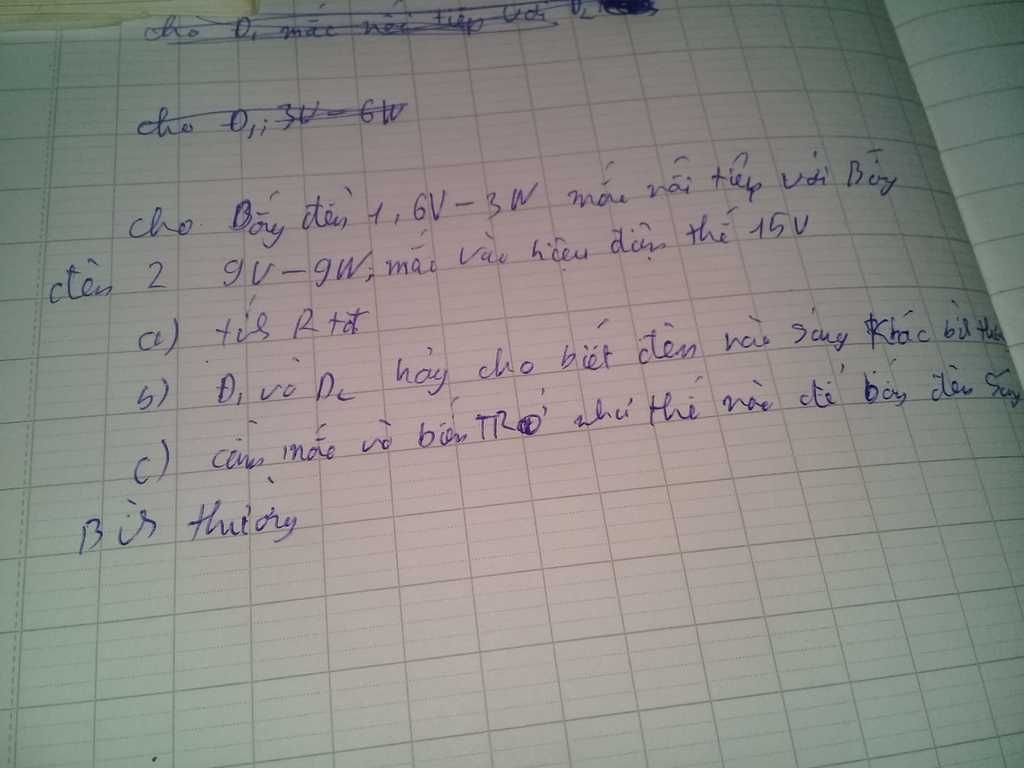 cho Đ1 mắc nối tiếp với Đ2
cho Đ1: 3V - 6W
cho Bóng đèn 1, 6V - 3W mắc nối tiếp với Bóng
đèn 2 9V - 9W, mắc vào hiệu điện thế 15V
a) tính R tđ
b) Đ1 và Đ2 hãy cho biết đèn nào sáng khác bình thường
c) cần mắc vô biến TRở như thế nào để bóng đèn sáng
Bình thường